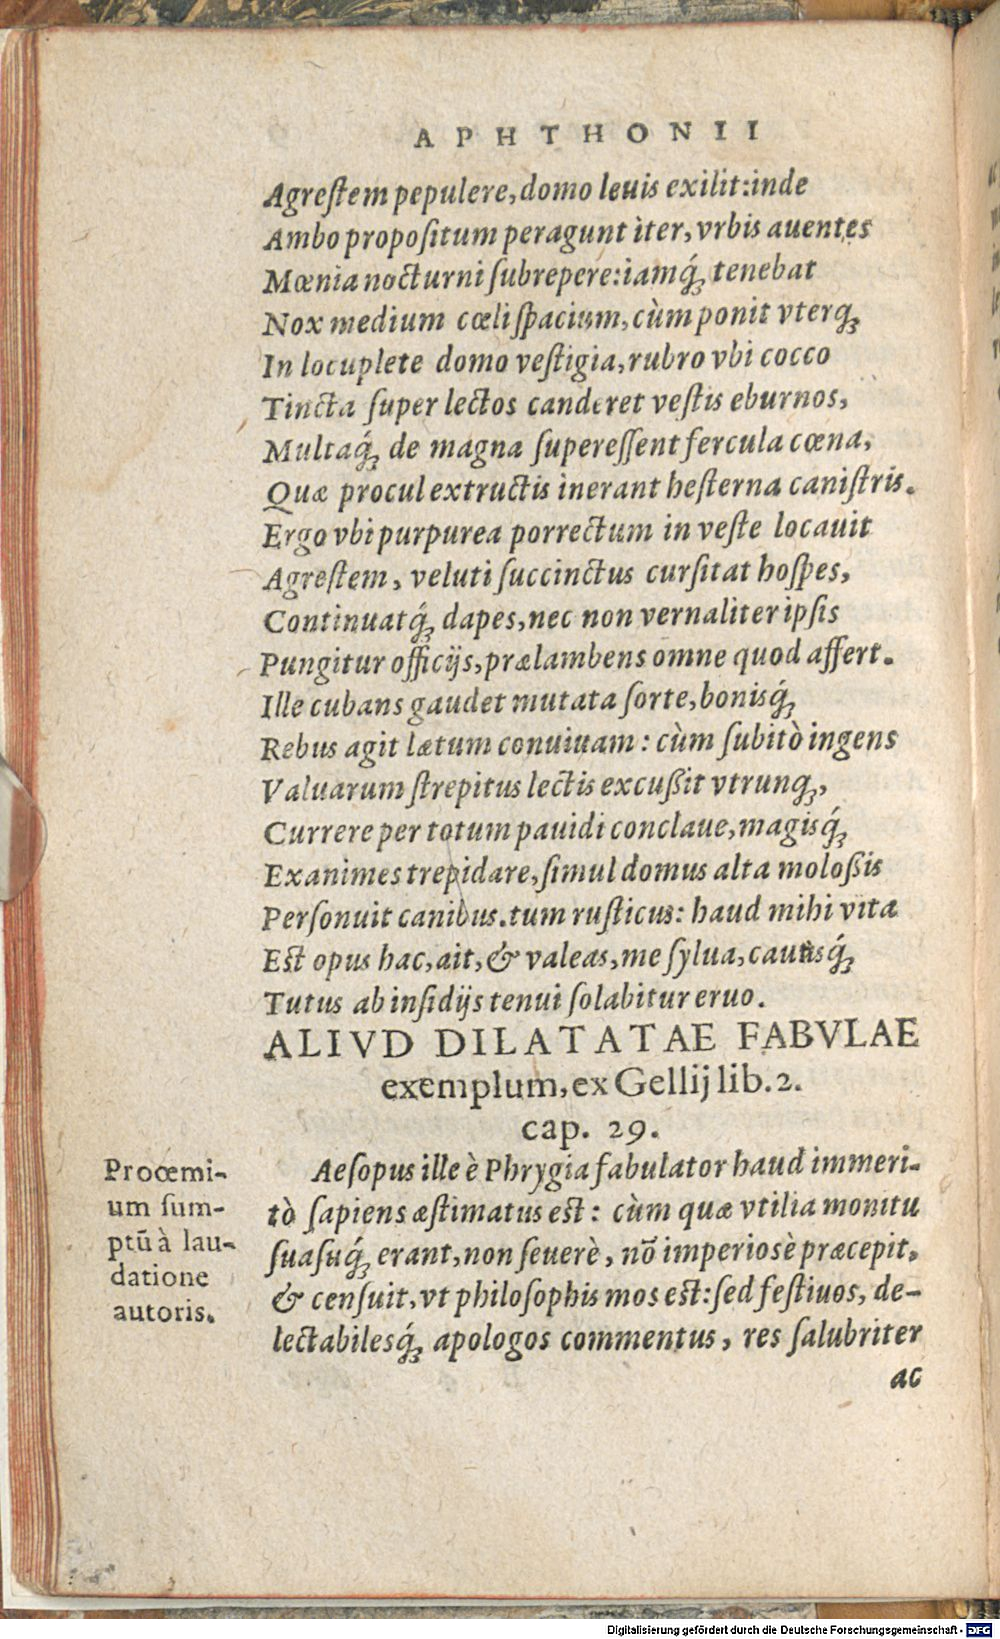 APHTHONII
Agreſtem pepulere, domo leuis exilit: inde
Ambo propoſitum peragunt iter, vrbis auentes
Mœnia nocturni ſubrepere: iamq́ꝫ tenebat
Nox medium cœli ſpacium, cùm ponit vterqꝫ
In locuplete domo veſtigia, rubro vbi cocco
Tincta ſuper lectos canderet veſtis eburnos,
Multaq́ꝫ de magna ſupereſſent fercula cœna,
Quæ procul extructis inerant heſterna caniſtris.
Ergo vbi purpurea porrectum in veſte locauit
Agreſtem, veluti ſuccinctus curſitat hoſpes,
Continuatq́ꝫ dapes, nec non vernaliter ipſis
Pungitur officijs, prælambens omne quod affert.
Ille cubans gaudet mutata ſorte, bonisq́ꝫ
Rebus agit lætum conuiuam: cùm ſubitò ingens
Valuarum ſtrepitus lectis excußit vtrunqꝫ,
Currere per totum pauidi conclaue, magisq́ꝫ
Exanimes trepidare, ſimul domus alta moloßis
Perſonuit canibus. tum ruſticus: haud mihi vita
Eſt opus hac, ait, & valeas, me ſylua, cauusq́ꝫ
Tutus ab inſidijs tenui ſolabitur eruo.
ALIVD DILATATAE FABVLAE
exemplum, ex Gellij lib. 2.
cap. 29.
Proœmi-
um ſum-
ptũ à lau-
datione
autoris.
Aeſopus ille è Phrygia fabulator haud immeri-
tò ſapiens æſtimatus eſt: cùm quæ vtilia monitu
ſuaſuq́ꝫ erant, non ſeuerè, nõ imperiosè præcepit,
& cenſuit, vt philoſophis mos eſt: ſed feſtiuos, de-
lectabilesq́ꝫ apologos commentus, res ſalubriter
ac
Digitalisierung gefördert durch die Deutsche Forschungsgemeinschaft - DFG